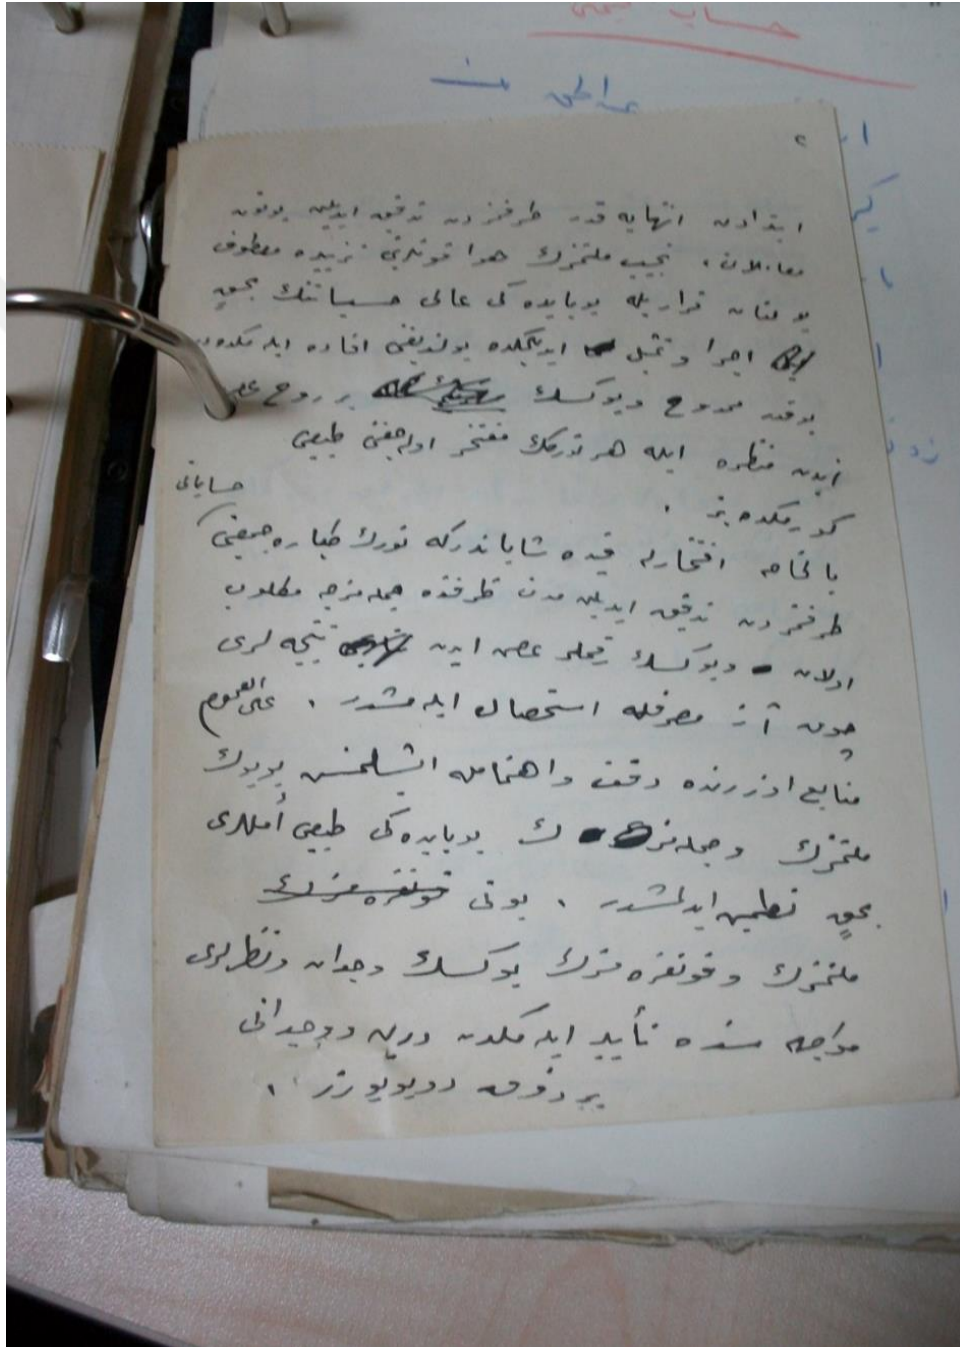 حساب
عبدالحق
٢
ابتدادن انتهایه قدر طرفمزدن تدقیق ایدیلن بوتون
معاملات، نجیب ملتمزك هوا قوتلرینی تزییده معطوف
بولنان قراریله بوبابده كی عالی حسیاتنك بحقٍ
اجرا و تمثیل ایدیلمكده بولندیغنی افاده ایله مكده
بوقدر ممدوح ویوكسك بر روح
ایدن منظره ایله هر تورك مفتخر اوله جغنی طبیعی
كورمكده یز .
حساباتی
بالخاصه افتخارله قیده شایاندركه تورك طیاره جمعیتی
طرفمزدن تدقیق ایدیلن مدت ظرفنده جمله مزجه مطلوب
اولان ویوكسك رقملر عرض ایدن نتیجه لری
چوق آز مصرفله استحصال ایله مشدر . علی العموم
منابع اوزرنده دقت واهتمامله ایشلمش بویوك
ملتمزك وجمله مزك بوبابده كی طبیعی أمللری
بحقٍ تطمین ایدلمشدر . بونی قونغره مزك
ملتمزك وقونغره مزك یوكسك وجدان ونظرلری
مواجهه سنده تأیید ایله مكدن درین ووجدانی
بر ذوق دویویورز .